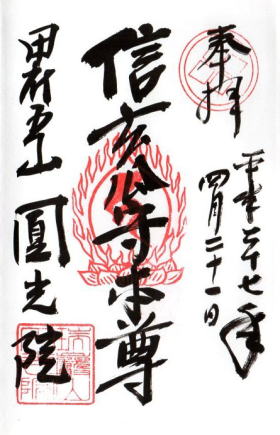 奉拝
平成二十七年
四月二十一日
信玄公守本尊
甲府五山 圓光院